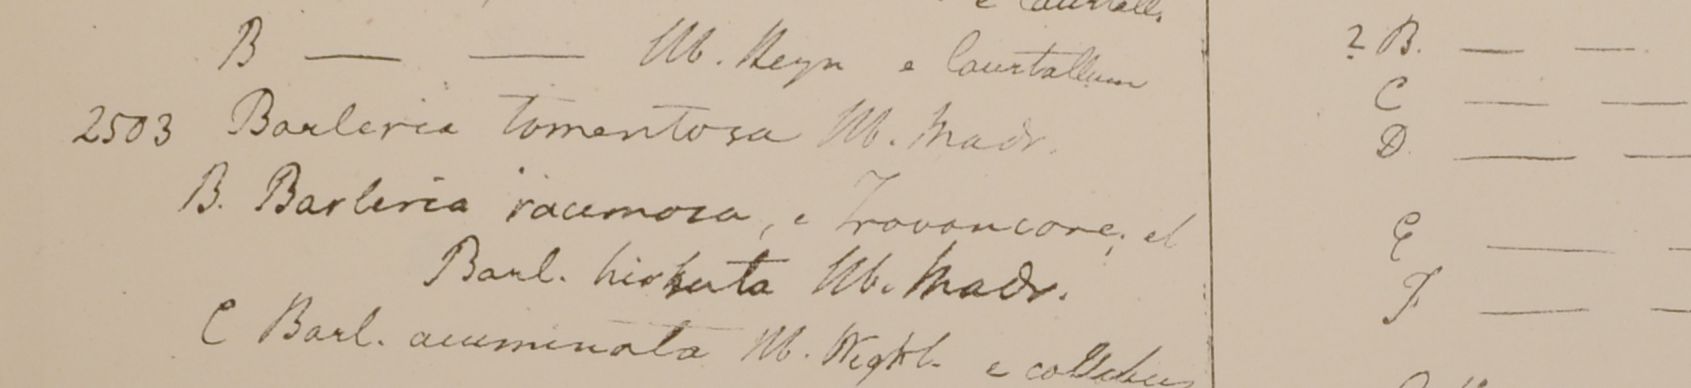 B — — Hb. Heyn e Courtallum
2503 Barleria tomentosa Hb. Madr.
B. Barleria racemosa, e Travancore; et
Barl. hirsuta Hb. Madr.
C Barl. acuminata Hb. Wight.
? B. — —
C — —
D. — —
E — —
F. — —